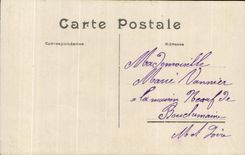 Carte Postale
Correspondance
Adresse
Mademoiselle
Marie Vannier
à la maison Neuve de
Bouchemaine
M et Loire